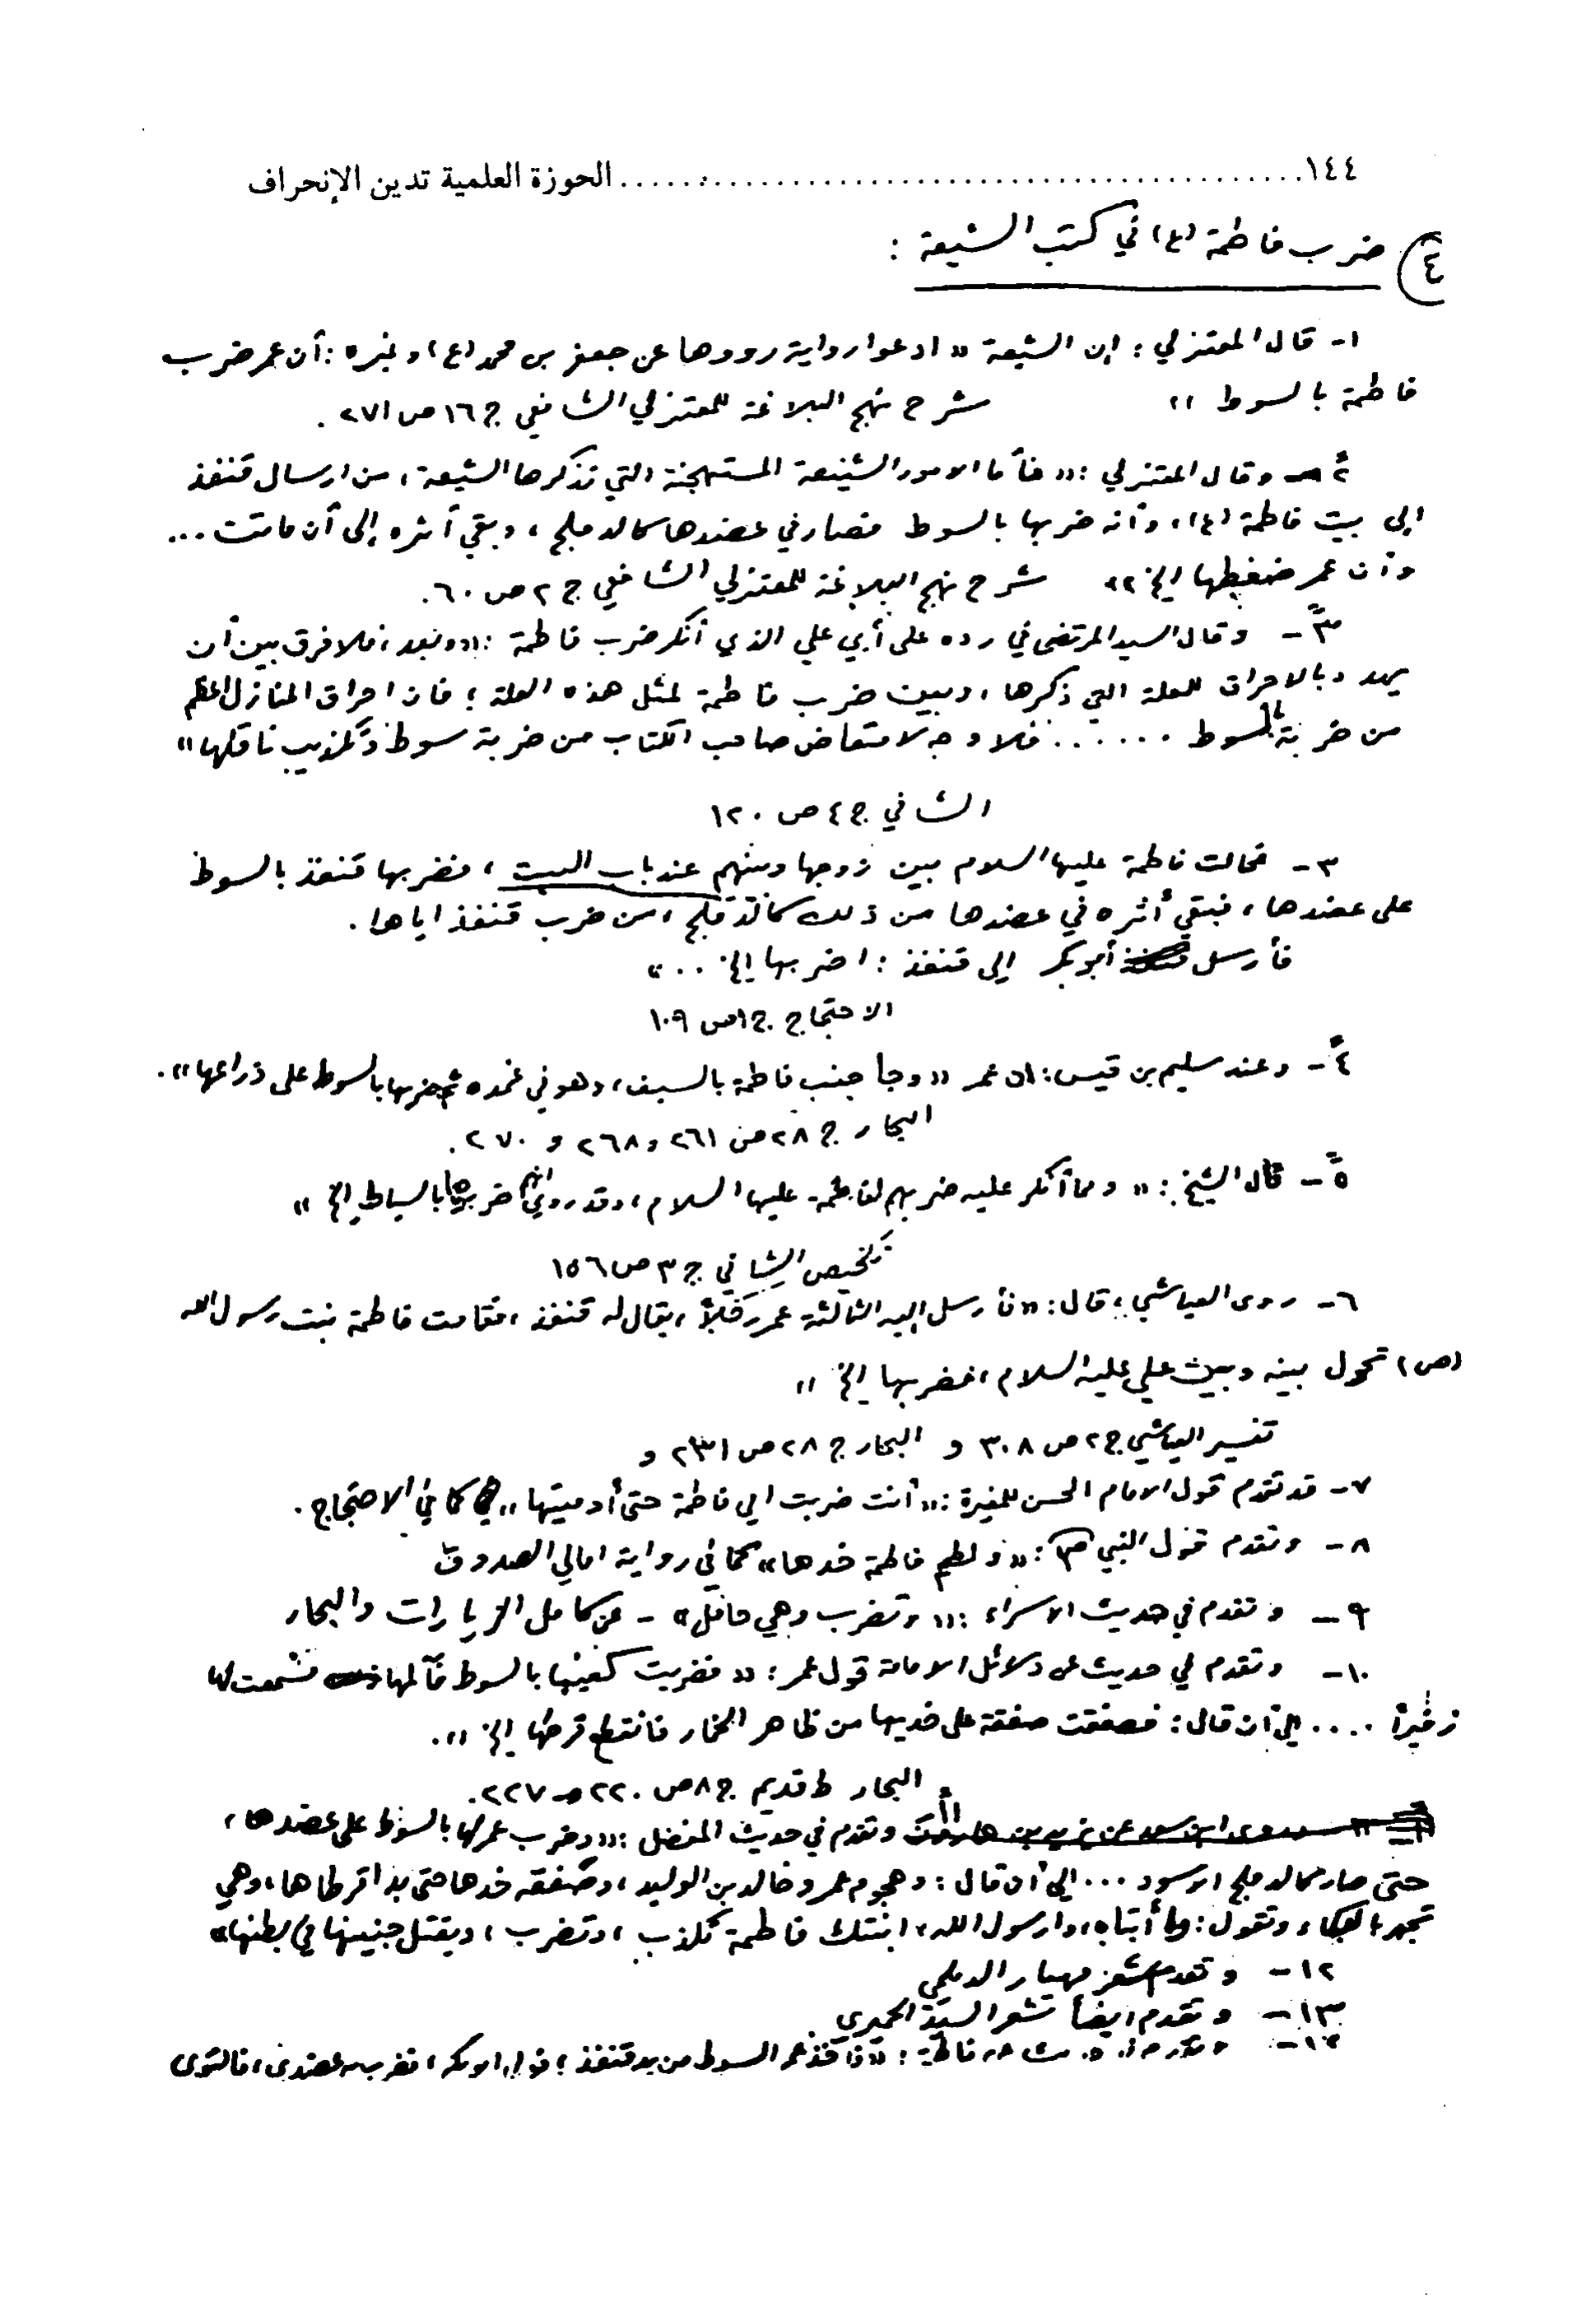 ١٤٤............................................الحوزة العلمية تدين الإنحراف
٤) ضرب فاطمة (ع) في كتب الشيعة :
١- قال المعتزلي : إن الشيعة « ادعوا رواية رووها عن جعفر بن محمد (ع) وغيره : أن عمر ضرب
فاطمة بالسوط » شرح نهج البلاغة للمعتزلي الشافعي ج ١٦ ص ٢٧١ .
٢- وقال المعتزلي : « فأما الامور الشنيعة المستهجنة التي تذكرها الشيعة ، من ارسال قنفذ
الى بيت فاطمة (ع) ، وأنه ضربها بالسوط فصار في عضدها كالدملج ، وبقي أثره إلى أن ماتت ...
وأن عمر ضغطها الخ » شرح نهج البلاغة للمعتزلي الشافعي ج ٢ ص ٦٠ .
٣- وقال السيد المرتضى في رده على أبي علي الذي أنكر ضرب فاطمة : « وبعد ، فلا فرق بين أن
يهدد بالاحراق للعلة التي ذكرها ، وبين ضرب فاطمة لمثل هذه العلة ؛ فان احراق المنازل اعظم
من ضربة بالسوط ...... فلا وجه لامتعاض صاحب الكتاب من ضربة سوط وتكذيب ناقلها »
الشافي ج ٤ ص ١٢٠
٣- فحالت فاطمة عليها السلام بين زوجها وبينهم عند باب البيت ، فضربها قنفذ بالسوط
على عضدها ، فبقي أثره في عضدها من ذلك كالدملج ، من ضرب قنفذ اياها .
فأرسل أبو بكر الى قنفذ : اضربها الخ .. »
الاحتجاج ج ١ ص ١٠٩
٤- وعند سليم بن قيس : ان عمر « وجأ جنب فاطمة بالسيف ، وهو في غمده ثم ضربها بالسوط على ذراعها » .
البحار ج ٢٨ ص ٢٦١ و ٢٦٨ و ٢٧٠ .
٥- قال الشيخ : « ومما أنكر عليه ضربهم لفاطمة عليها السلام ، وقد روي انهم ضربوها بالسياط الخ »
تلخيص الشافي ج ٣ ص ١٥٦
٦- روى العياشي ؛ قال : « فأرسل إليه الثالثة عمر رجلاً ، يقال له قنفذ ، فقامت فاطمة بنت رسول الله
(ص) تحول بينه وبين علي عليه السلام ، فضربها الخ »
تفسير العياشي ج ٢ ص ٣٠٨ و البحار ج ٢٨ ص ٢٣١ و
٧- قد تقدم قول الامام الحسن للمغيرة : « أنت ضربت فاطمة حتى أدميتها » كما في الاحتجاج .
٨- وتقدم قول النبي ص : « ولطم فاطمة خدها » كما في رواية امالي الصدوق
٩- وتقدم في حديث الاسراء : « وتضرب وهي حامل » - عن كامل الزيارات والبحار
١٠- وتقدم في حديث عن دلائل الامامة قول عمر : « فضربت كفيها بالسوط فآلمها فسمعت لها
زفيراً .... إلى أن قال : فصفقت صفقة على خديها من ظاهر الخمار فانقطع قرطها الخ » .
البحار ط قديم ج ٨ ص ٢٢٠ و ٢٢٧ .
١١- وتقدم في حديث المفضل : « وضرب عمر لها بالسوط على عضدها ،
حتى صار كالدملج الاسود ... إلى أن قال : وهجوم عمر وخالد بن الوليد ، وصفقه خدها حتى بدا قرطاها ، وهي
تجهر بالبكاء وتقول : وا أبتاه ، وا رسول الله ، ابنتك فاطمة تكذب ، وتضرب ، ويقتل جنينها في بطنها »
١٢- وتقدم شعر مهيار الديلمي
١٣- وتقدم ايضاً شعر السيد الحميري
١٤- فاطمة : « فأخذ عمر السوط من يد قنفذ ، فضرب به عضدي ، فالتوى